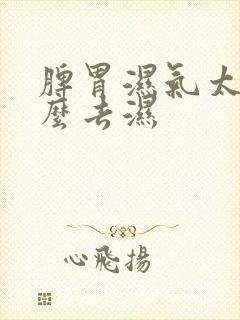 脾胃濕氣太
麼去濕
心飛揚